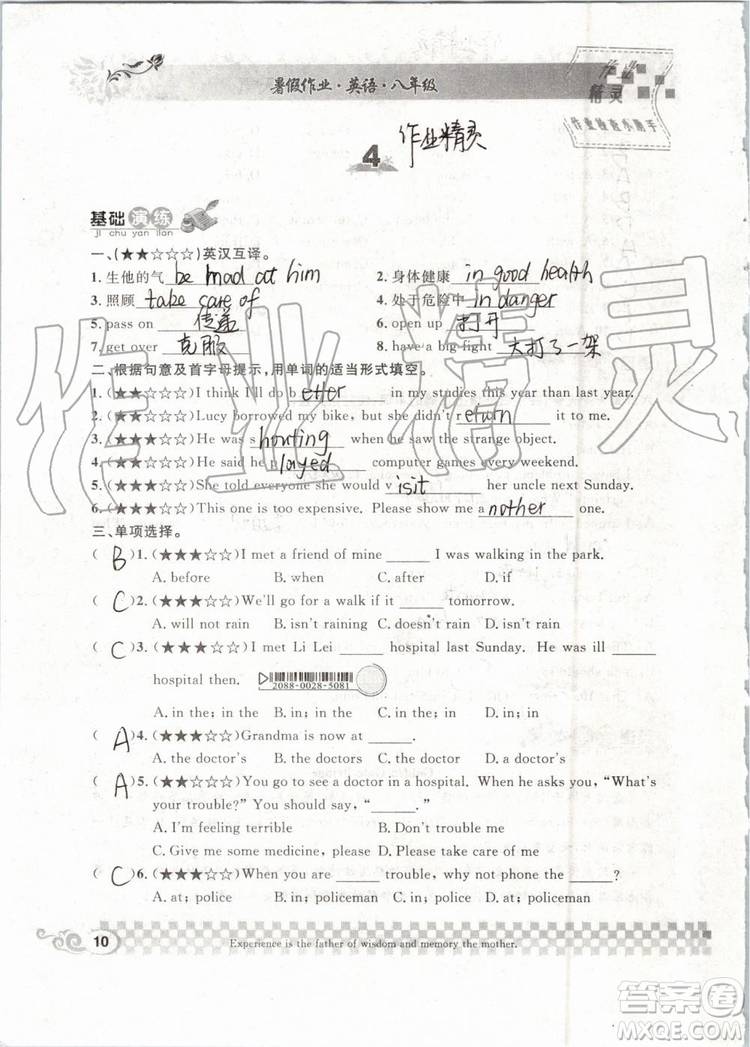 暑假作业·英语·八年级
作业
精灵
作业检查小助手
4 作业精灵
基础演练
ji chu yan lian
一、(★★☆☆☆)英汉互译。
1. 生他的气 be mad at him 2. 身体健康 in good health
3. 照顾 take care of 4. 处于危险中 in danger
5. pass on 传递 6. open up 打开
7. get over 克服 8. have a big fight 大打了一架
二、根据句意及首字母提示,用单词的适当形式填空。
1. (★★★☆☆)I think I'll do better in my studies this year than last year.
2. (★★★☆☆)Lucy borrowed my bike, but she didn't return it to me.
3. (★★★☆☆)He was shouting when he saw the strange object.
4. (★★★★☆)He said he played computer games every weekend.
5. (★★★☆☆)She told everyone she would visit her uncle next Sunday.
6. (★★★☆☆)This one is too expensive. Please show me another one.
三、单项选择。
( B )1. (★★★☆☆)I met a friend of mine ______ I was walking in the park.
A. before B. when C. after D. if
( C )2. (★★★☆☆)We'll go for a walk if it ______ tomorrow.
A. will not rain B. isn't raining C. doesn't rain D. isn't rain
( C )3. (★★★☆☆)I met Li Lei ______ hospital last Sunday. He was ill ______
hospital then. 2088-0028-5081
A. in the; in the B. in; in the C. in the; in D. in; in
( A )4. (★★★☆☆)Grandma is now at ______.
A. the doctor's B. the doctors C. the doctor D. a doctor's
( A )5. (★★★☆☆)You go to see a doctor in a hospital. When he asks you, “What's
your trouble?” You should say, “______.”
A. I'm feeling terrible B. Don't trouble me
C. Give me some medicine, please D. Please take care of me
( C )6. (★★★☆☆)When you are ______ trouble, why not phone the ______?
A. at; police B. in; policeman C. in; police D. at; policeman
10 Experience is the father of wisdom and memory the mother.
作业精灵
答案圈
MXQE.COM